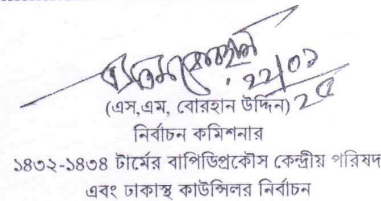 ২২/০১
২৫
(এস,এম, বোরহান উদ্দিন)
নির্বাচন কমিশনার
১৪৩২-১৪৩৪ টার্মের বাপিডিপ্রকৌস কেন্দ্রীয় পরিষদ
এবং ঢাকাস্থ কাউন্সিলর নির্বাচন